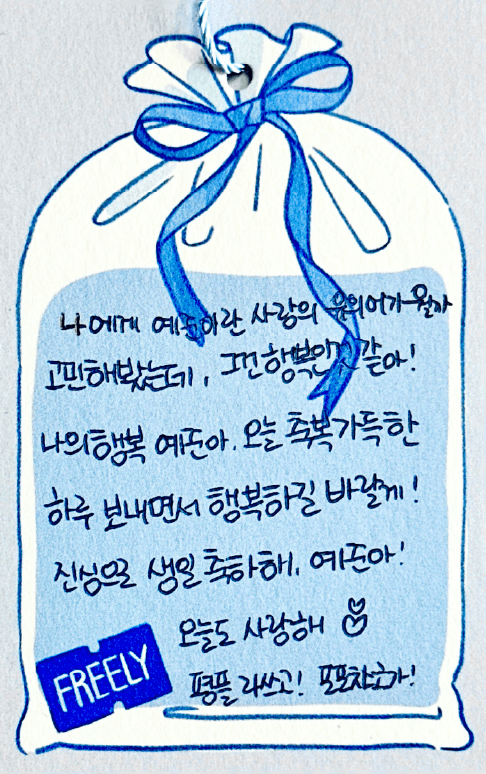 나에게 예준이란 사랑의 유의어가 뭘까
고민해봤는데, 그건 행복인 것 같아!
나의 행복 예준아. 오늘 축복 가득한
하루 보내면서 행복하길 바랄게!
진심으로 생일 축하해, 예준아!
오늘도 사랑해
FREELY
평플 라쓰고!